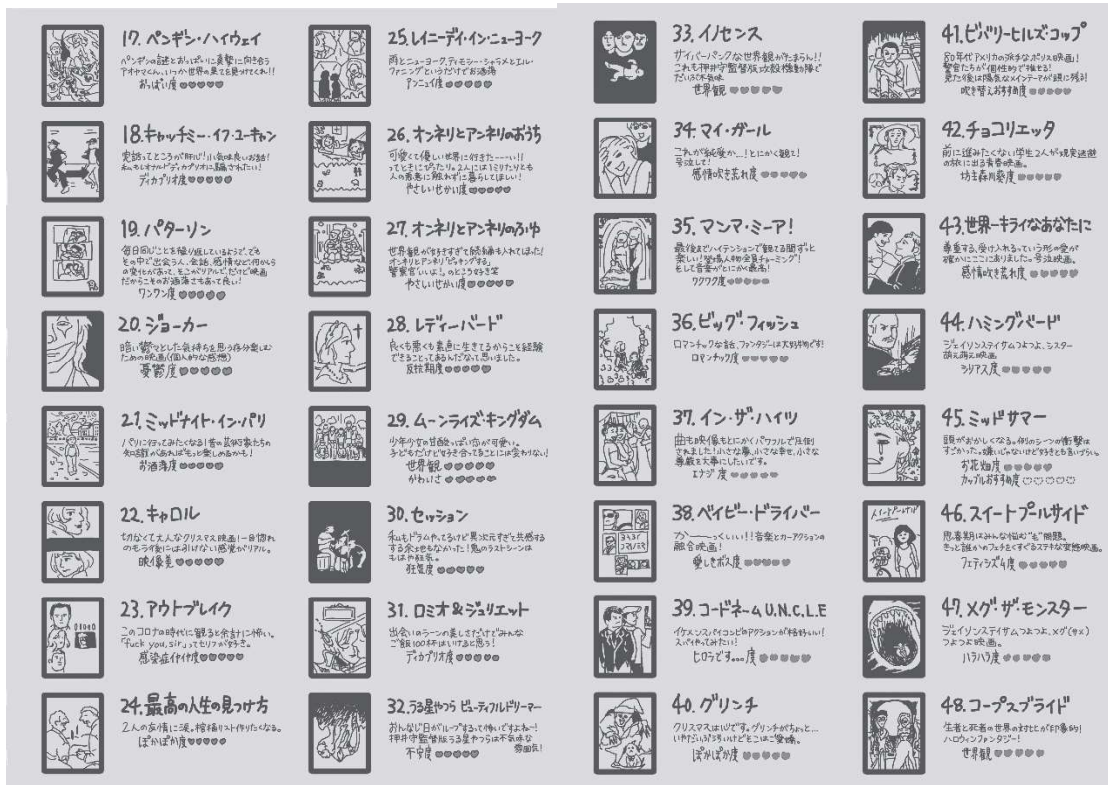 17. ペンギン・ハイウェイ
ペンギンの謎とおっぱいに真摯に向き合う
アオヤマくん、いつか世界の果てを見つけてくれ!!
おっぱい度
18. キャッチミー・イフ・ユーキャン
実話ってところが肝心!小気味良いお話!
私もレオナルドディカプリオに騙されたい!
ディカプリオ度
19. パターソン
毎日同じことを繰り返しているようで、でも
その中で出会う人、会話、感情など何かしら
の変化があって、そこがリアルで、だけど映画
だからこそのお洒落さもあって良い!
ワンワン度
20. ジョーカー
暗い鬱々とした気持ちを思う存分楽しむ
ための映画(個人的な感想)
憂鬱度
21. ミッドナイト・イン・パリ
パリに行ってみたくなる!昔の芸術家たちの
知識があればもっと楽しめるかも!
お洒落度
22. キャロル
切なくて大人なクリスマス映画!一目惚れ
のもう後には引けない感覚がリアル。
映像美
23. アウトブレイク
このコロナの時代に観ると余計に怖い。
"fuck you, sir"ってセリフが好き。
感染症イヤイヤ度
24. 最高の人生の見つけ方
2人の友情に涙。棺桶リスト作りたくなる。
ぽかぽか度
25. レイニーデイ・イン・ニューヨーク
雨とニューヨーク、ティモシー・シャラメとエル・
ファニングというだけでお洒落
アンニュイ度
26. オンネリとアンネリのおうち
可愛くて優しい世界に行きたーーい!!
ってときにぴったり。2人には1ミリたりとも
人の悪意に触れずに暮らしてほしい!
やさしいせかい度
27. オンネリとアンネリのふゆ
世界観が好きすぎて続編も入れてしまった!
オンネリとアンネリ"ピッキングする"
警察官"いいよ!"のところ好き笑
やさしいせかい度
28. レディーバード
良くも悪くも素直に生きてるからこそ経験
できることってあるんだなって思いました。
反抗期度
29. ムーンライズ・キングダム
少年少女の甘酸っぱい恋が可愛い。
子どもだけど好き合ってることには変わりない!
世界観
かわいさ
30. セッション
私もドラムやってるけど異次元すぎて共感する
する余地もなかった!鬼のラストシーンは
もはや狂気。
狂気度
31. ロミオ&ジュリエット
出会いのシーンの美しさだけでみんな
ご飯100杯はいけると思う!
ディカプリオ度
32. うる星やつら ビューティフルドリーマー
おんなじ日がループするって怖いですよね〜!
押井守監督版うる星やつらは不気味な
雰囲気!
不安度
33. イノセンス
サイバーパンクな世界観がたまらん!!
これも押井守監督版攻殻機動隊で
だいぶ不気味
世界観
34. マイ・ガール
これが純愛か…!とにかく観て!
号泣して!
感情吹き荒れ度
35. マンマ・ミーア!
最後までハイテンションで観てる間ずっと
楽しい!登場人物全員チャーミング!
そして音楽がとにかく最高!
ワクワク度
36. ビッグ・フィッシュ
ロマンチックな話、ファンタジーは大好物です!
ロマンチック度
37. イン・ザ・ハイツ
曲も映像もとにかくパワフルで圧倒
されました!小さな夢、小さな幸せ、小さな
尊厳を大事にしたいです。
エナジー度
38. ベイビー・ドライバー
か〜〜〜っくいい!!音楽とカーアクションの
融合映画!
愛しきボス度
39. コードネーム U.N.C.L.E
イケメンスパイコンビのアクションが格好いい!
スパイやってみたい!
ヒロシです…度
40. グリンチ
クリスマスは心です。グリンチがちょっと…
いやだいぶひねくれてるけどそこはご愛嬌。
ぽかぽか度
41. ビバリーヒルズ・コップ
80年代アメリカの派手なポリス映画!
警官たちが個性的で推せる!
見た後は陽気なメインテーマが頭に残る!
吹き替えおすすめ度
42. チョコリエッタ
前に進みたくない学生2人が現実逃避
の旅に出る青春映画。
坊主森川葵度
43. 世界一キライなあなたに
尊重する、受け入れるっていう形の愛が
確かにここにありました。号泣映画。
感情吹き荒れ度
44. ハミングバード
ジェイソンステイサムつよつよ、シスター
萌え萌え映画
シリアス度
45. ミッドサマー
頭がおかしくなる。例のシーンの衝撃は
すごかった。嫌いじゃないけど好きとも言いづらい。
お花畑度
カップルおすすめ度
46. スイートプールサイド
思春期はみんな悩む"毛"問題。
きっと誰かのフェチをくすぐるステキな変態映画。
フェティシズム度
47. メグ ザ・モンスター
ジェイソンステイサムつよつよ、メグ(サメ)
つよつよ映画。
ハラハラ度
48. コープスブライド
生者と死者の世界の対比が印象的!
ハロウィンファンタジー!
世界観